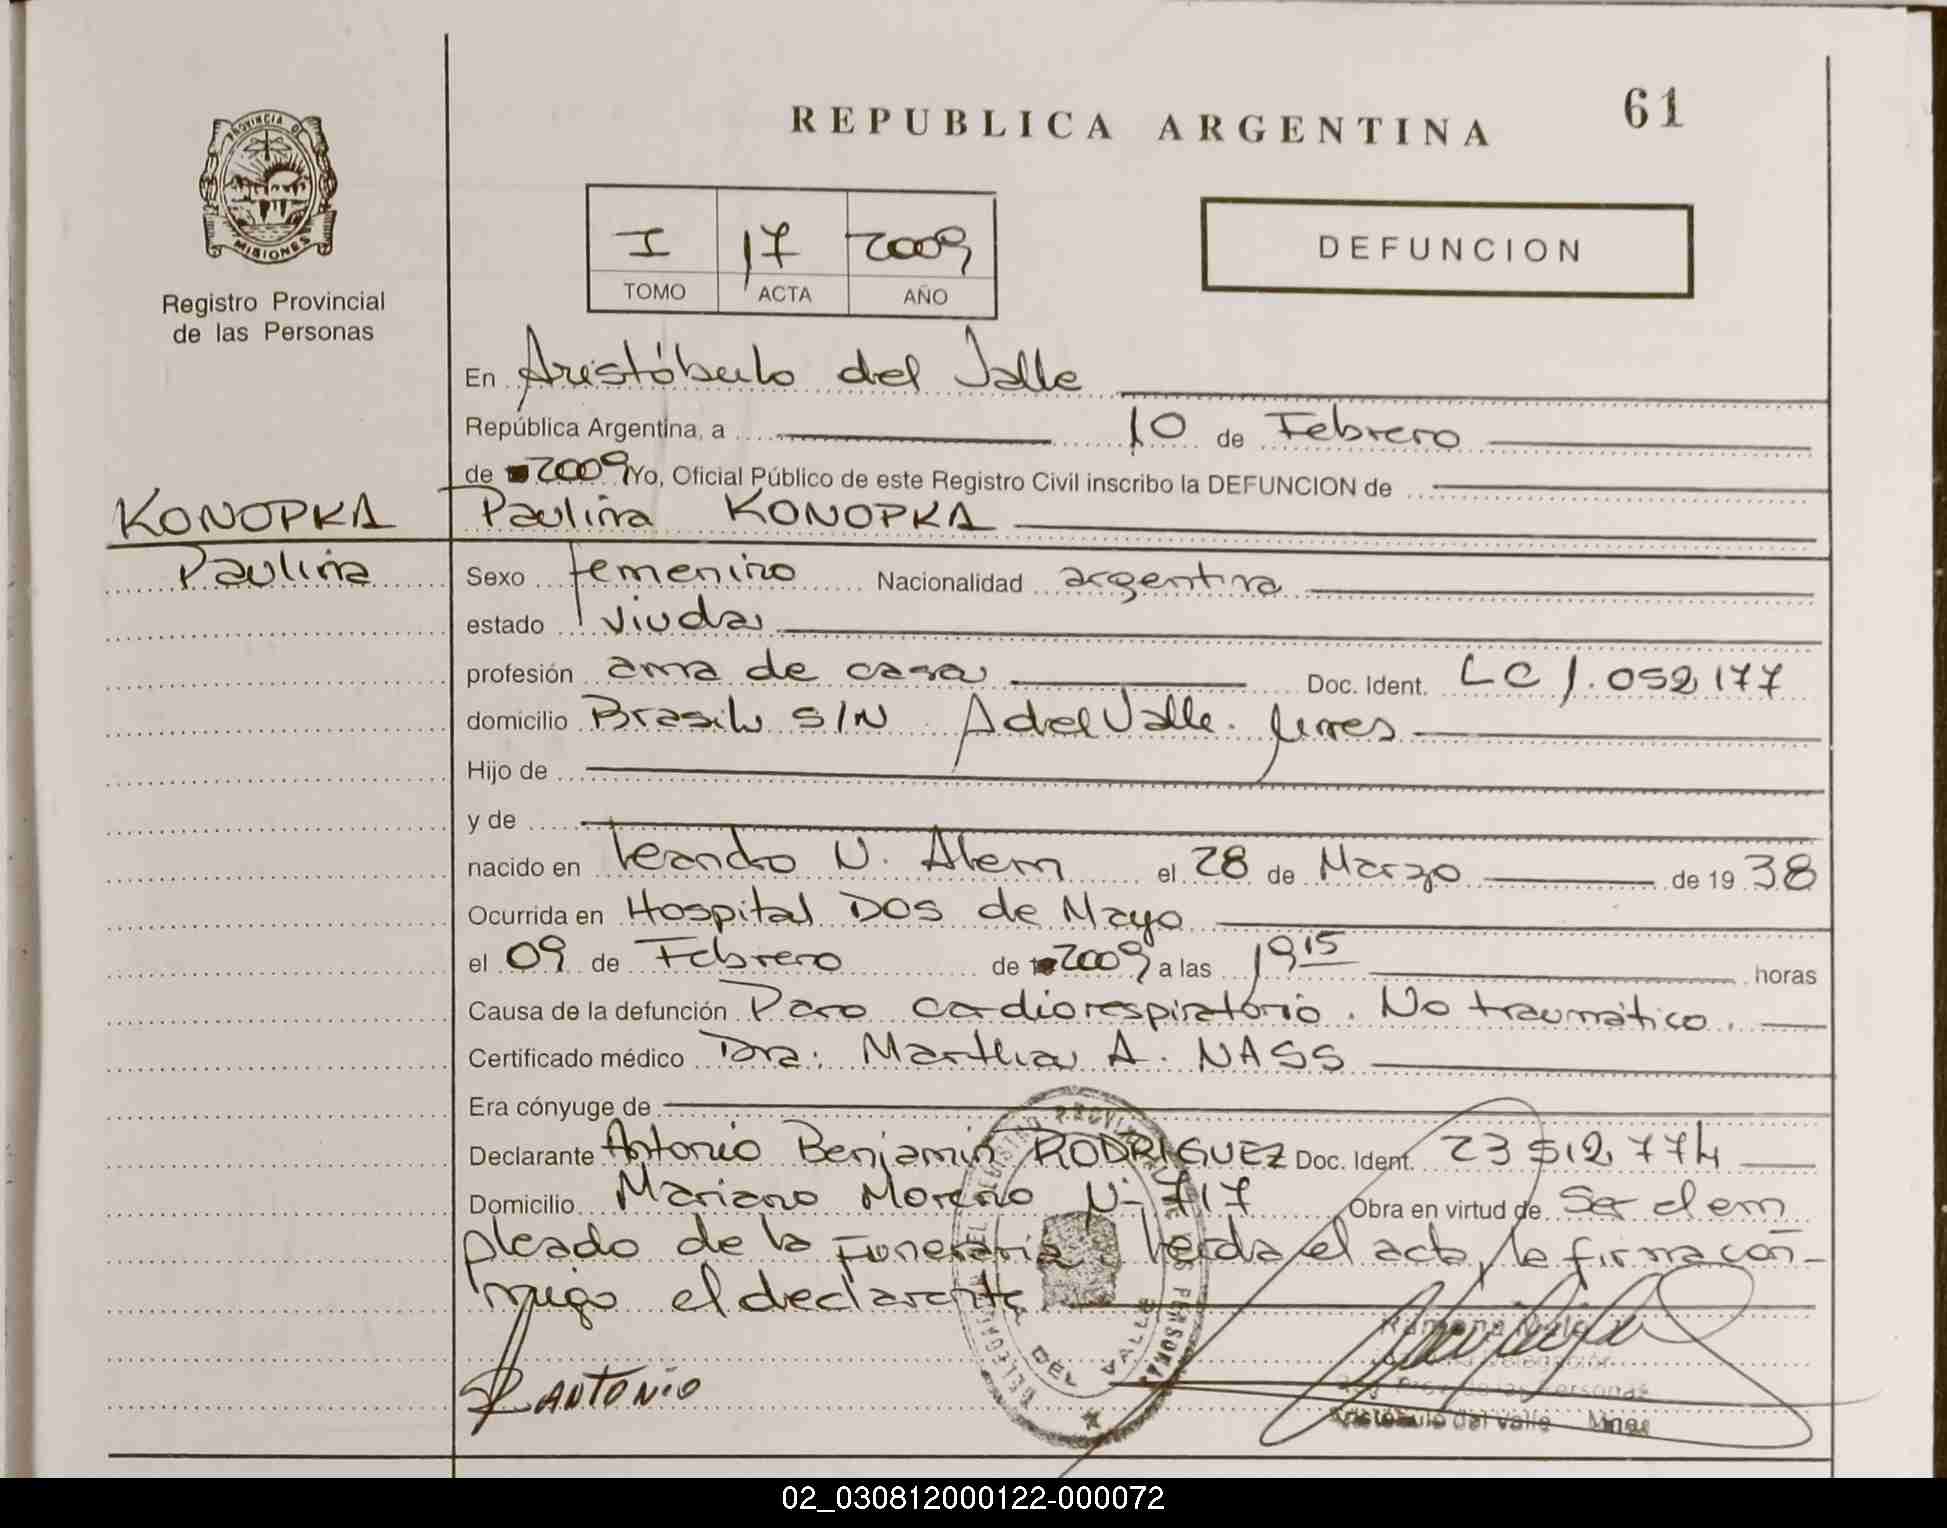 REPUBLICA ARGENTINA
61
PROVINCIA DE
MISIONES
Registro Provincial
de las Personas
I 17 2009
TOMO ACTA AÑO
DEFUNCION
En Aristóbulo del Valle
República Argentina, a 10 de Febrero
de 2009 Yo, Oficial Público de este Registro Civil inscribo la DEFUNCION de
KONOPKA
Paulina
Paulina KONOPKA
Sexo femenino Nacionalidad argentina
estado viuda
profesión ama de casa Doc. Ident. LC 1.052177
domicilio Brasil S/N A del Valle.
Hijo de
y de
nacido en Leandro N. Alem el 28 de Marzo de 1938
Ocurrida en Hospital DOS de Mayo
el 09 de Febrero de 2009 a las 19 15 horas
Causa de la defunción Paro cardiorespiratorio. No traumático.
Certificado médico Dra: Martha A. NASS
Era cónyuge de
Declarante Antonio Benjamin RODRIGUEZ Doc. Ident. 23 512 774
Domicilio Mariano Moreno N- 717 Obra en virtud de Ser el em
pleado de la Funeraria Leida el acta, la firma con-
migo el declarante
R ANTONIO
DEL VALLE
Aristóbulo del Valle Mnes
02_030812000122-000072